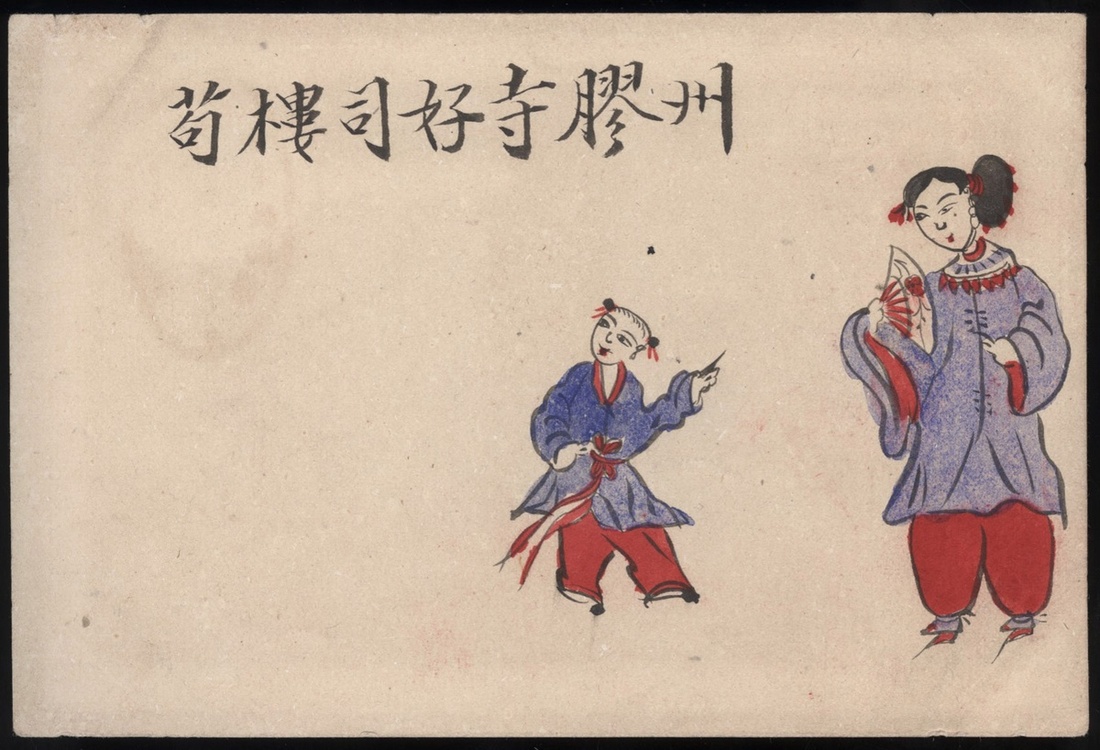 苟樓司好寺膠州